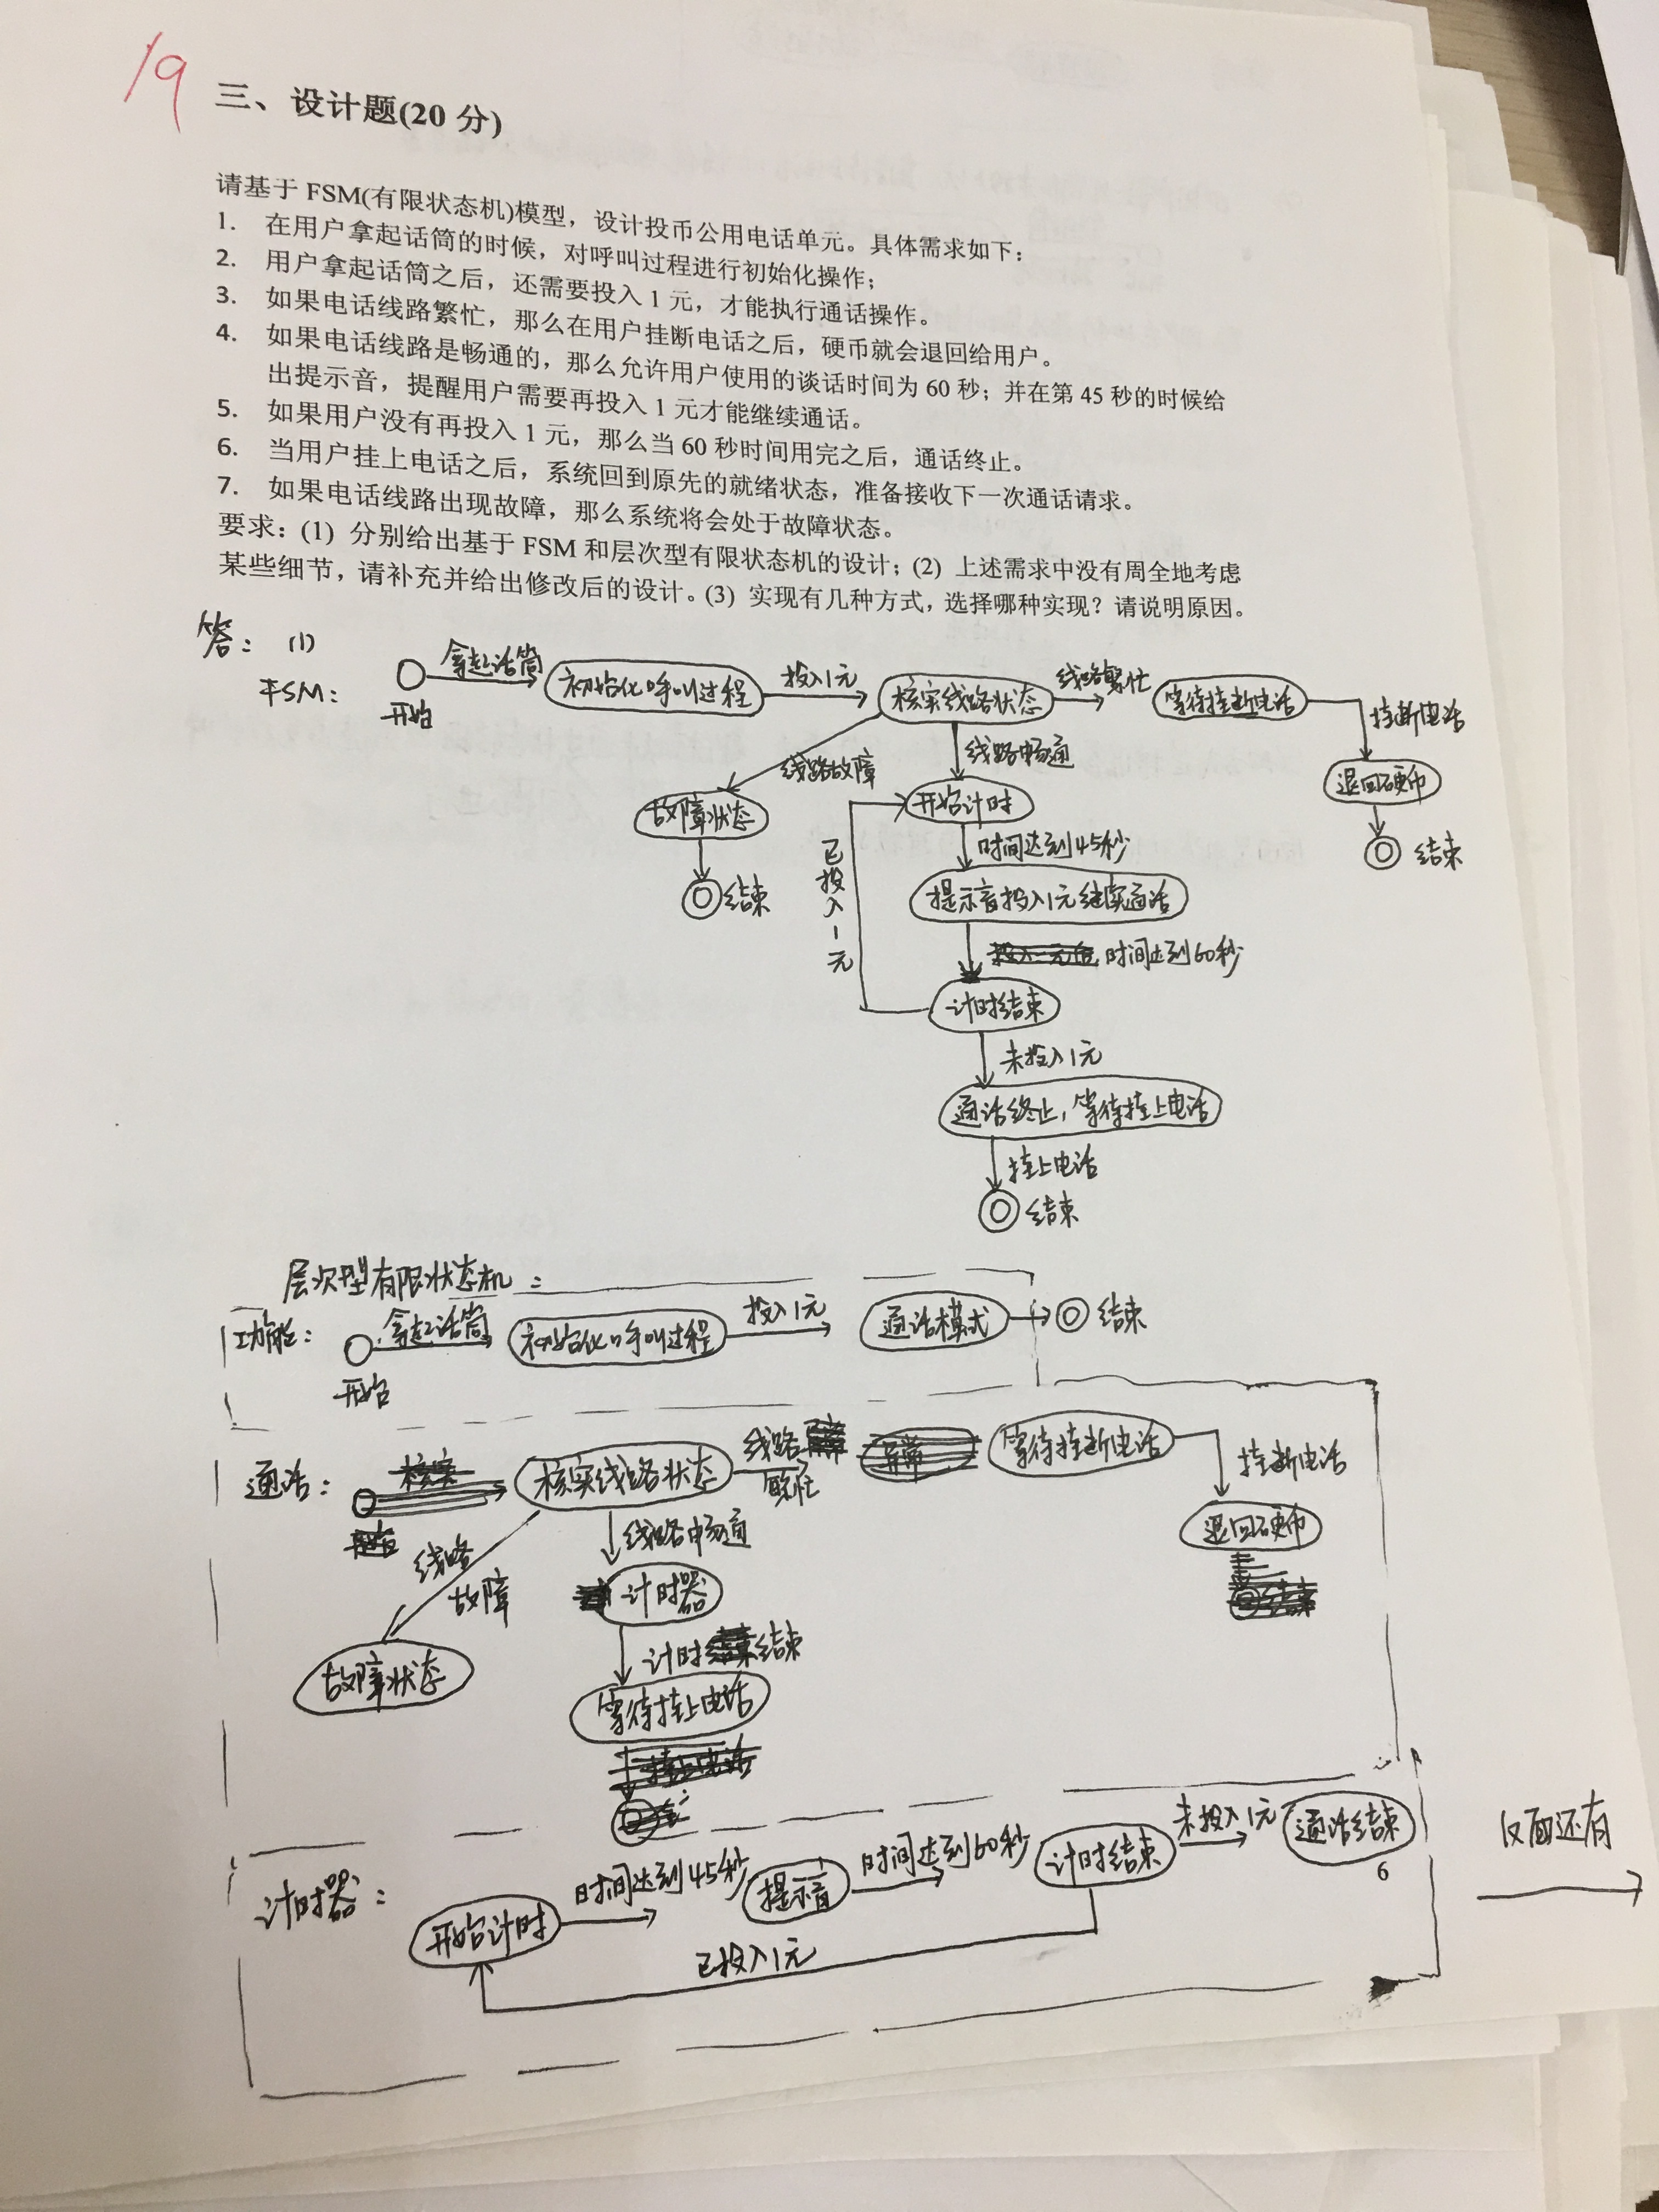 19
三、设计题(20 分)
请基于 FSM(有限状态机)模型，设计投币公用电话单元。具体需求如下：
1. 在用户拿起话筒的时候，对呼叫过程进行初始化操作；
2. 用户拿起话筒之后，还需要投入 1 元，才能执行通话操作。
3. 如果电话线路繁忙，那么在用户挂断电话之后，硬币就会退回给用户。
4. 如果电话线路是畅通的，那么允许用户使用的谈话时间为 60 秒；并在第 45 秒的时候给
出提示音，提醒用户需要再投入 1 元才能继续通话。
5. 如果用户没有再投入 1 元，那么当 60 秒时间用完之后，通话终止。
6. 当用户挂上电话之后，系统回到原先的就绪状态，准备接收下一次通话请求。
7. 如果电话线路出现故障，那么系统将会处于故障状态。
要求：(1) 分别给出基于 FSM 和层次型有限状态机的设计；(2) 上述需求中没有周全地考虑
某些细节，请补充并给出修改后的设计。(3) 实现有几种方式，选择哪种实现？请说明原因。
答： (1)
FSM： 开始 拿起话筒 初始化呼叫过程 投入1元 核实线路状态 线路繁忙 等待挂断电话
挂断电话
线路故障 线路畅通
退回硬币
故障状态 开始计时
结束
时间达到45秒
结束
已投入1元
提示音投入1元继续通话
时间达到60秒
计时结束
未投入1元
通话终止，等待挂上电话
挂上电话
结束
层次型有限状态机：
功能： 拿起话筒 初始化呼叫过程 投入1元 通话模式 结束
开始
通话： 核实线路状态 线路繁忙 等待挂断电话
挂断电话
线路故障 线路畅通
退回硬币
计时器
计时结束
故障状态
等待挂上电话
计时器： 开始计时 时间达到45秒 提示音 时间达到60秒 计时结束 未投入1元 通话结束
已投入1元
6
反面还有